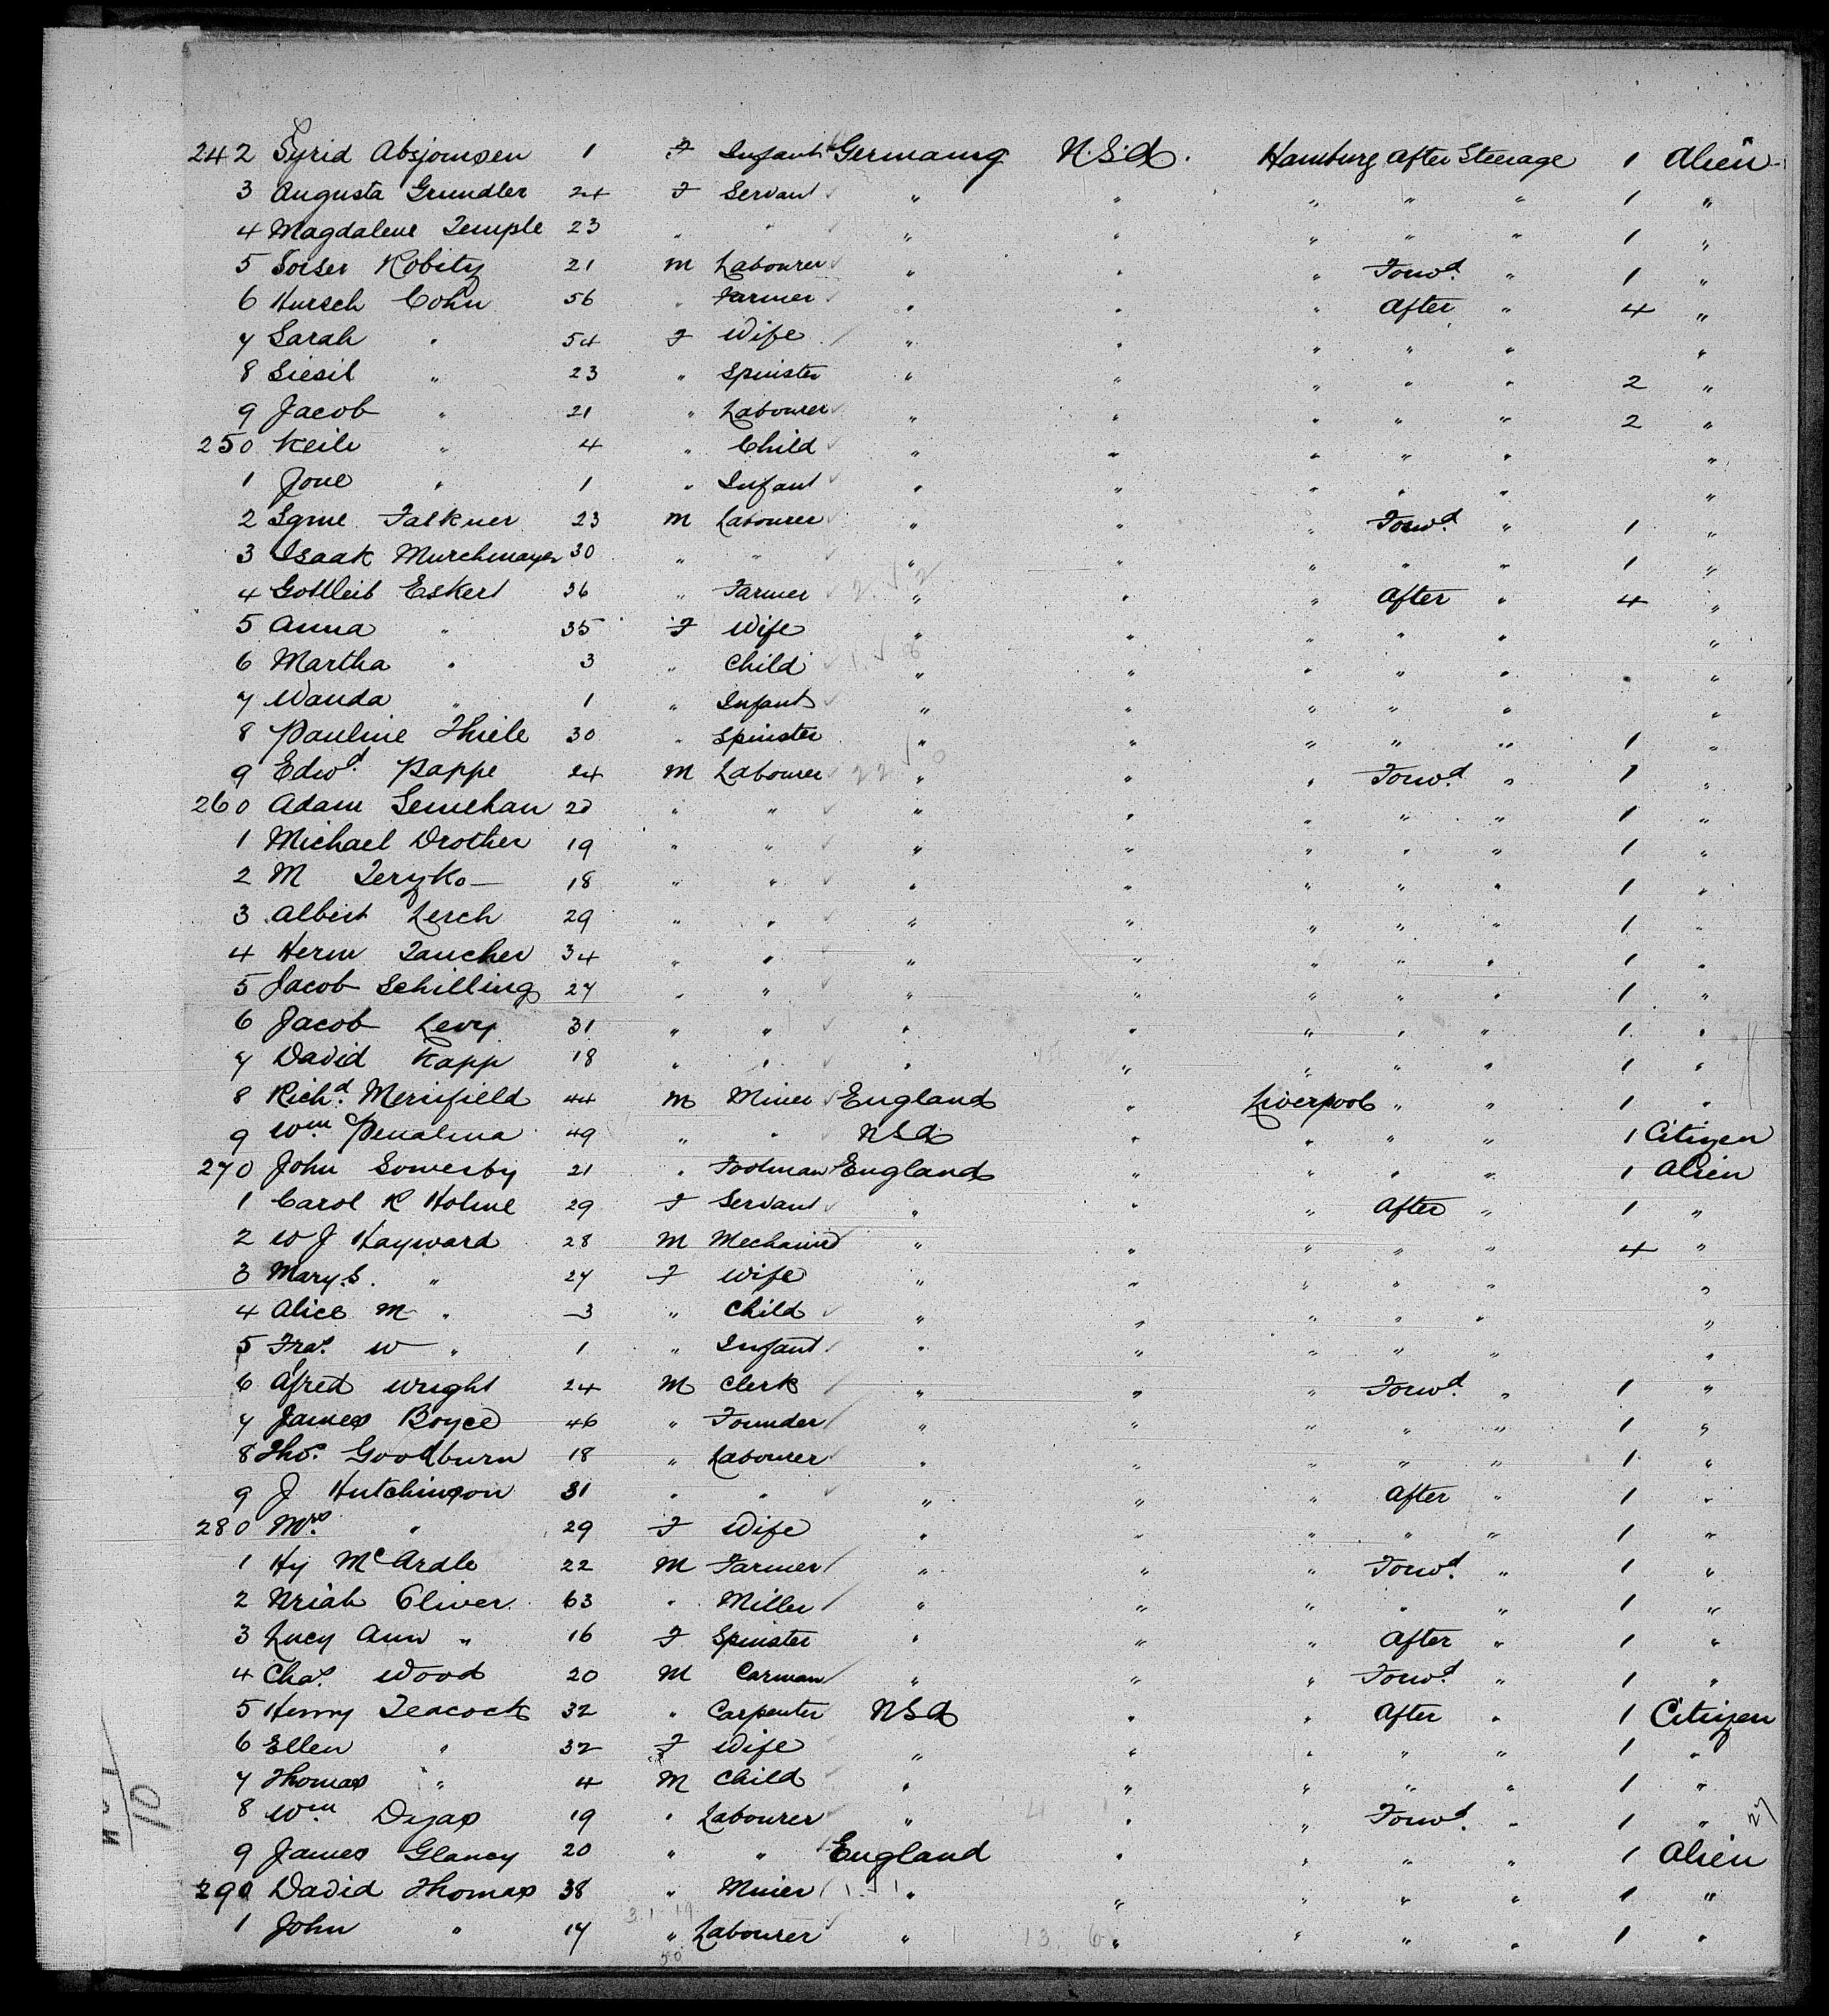 242 Syrid Absjomsen 1 F Infant Germany N.S.A. Hamburg After Steerage 1 Alien
3 Augusta Grundler 24 F Servant " " " " " 1 "
4 Magdalene Temple 23 " " " " " " " 1 "
5 Soiser Kobitz 21 M Labourer " " " Forwd. " 1 "
6 Hursch Cohn 56 " Farmer " " " After " 4 "
7 Sarah " 54 F Wife " " " " " "
8 Siesil " 23 " Spinster " " " " " 2 "
9 Jacob " 21 " Labourer " " " " " 2 "
250 Keile " 4 " Child " " " " " "
1 Jone " 1 " Infant " " " " " "
2 Falkner 23 M Labourer " " " Forwd. " 1 "
3 Isaak Murchmayer 30 " " " " " " " 1 "
4 Gottleib Eskert 36 " Farmer " " " After " 4 "
5 Anna " 35 F Wife " " " " " "
6 Martha " 3 " Child " " " " " "
7 Wanda " 1 " Infant " " " " " "
8 Pauline Thiele 30 " Spinster " " " " " 1 "
9 Edwd. Pappe 24 M Labourer " " " Forwd. " 1 "
260 Adam Semehan 20 " " " " " " " 1 "
1 Michael Drother 19 " " " " " " " 1 "
2 M Teryko 18 " " " " " " " 1 "
3 Albert Lerch 29 " " " " " " " 1 "
4 Herm Taucher 34 " " " " " " " 1 "
5 Jacob Schilling 27 " " " " " " " 1 "
6 Jacob Levy 31 " " " " " " " 1 "
7 David Kapp 18 " " " " " " " 1 "
8 Richd. Merifield 44 M Miner England " Liverpool " " 1 "
9 Wm. Penalina 49 " " NSA " " " " 1 Citizen
270 John Sowerby 21 " Footman England " " " " 1 Alien
1 Carol R Holme 29 F Servant " " " After " 1 "
2 W J Hayward 28 M Mechanic " " " " " 4 "
3 Mary S. " 27 F Wife " " " " " "
4 Alice M " 3 " Child " " " " " "
5 Fras. W " 1 " Infant " " " " " "
6 Afred Wright 24 M Clerk " " " Forwd. " 1 "
7 James Boyce 46 " Founder " " " " " 1 "
8 Thos. Goodburn 18 " Labourer " " " " " 1 "
9 J Hutchinson 31 " " " " " After " 1 "
280 Mrs. " 29 F Wife " " " " " 1 "
1 Hy McArdle 22 M Farmer " " " Forwd. " 1 "
2 Uriah Oliver 63 " Miller " " " " " 1 "
3 Lucy Ann " 16 F Spinster " " " After " 1 "
4 Chas. Wood 20 M Carman " " " Forwd. " 1 "
5 Henry Teacock 32 " Carpenter NSA " " After " 1 Citizen
6 Ellen " 32 F Wife " " " " " 1 "
7 Thomas " 4 M Child " " " " " 1 "
8 Wm Dyas 19 " Labourer " " " Forwd. " 1 " 27
9 James Glancy 20 " " England " " " " 1 Alien
290 David Thomas 38 " Miner " " " " " 1 "
1 John " 17 " Labourer " " " " " 1 "